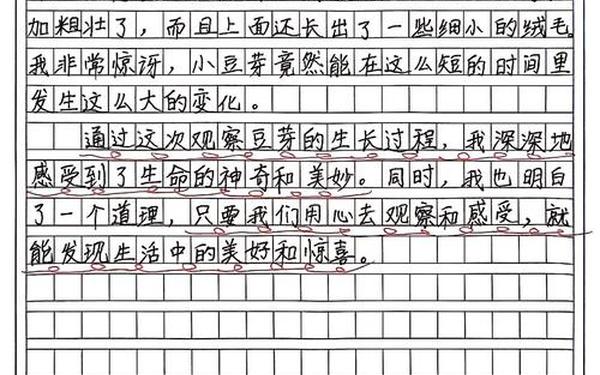 加粗壮了，而且上面还长出了一些细小的绒毛。
我非常惊讶，小豆芽竟然能在这么短的时间里
发生这么大的变化。
通过这次观察豆芽的生长过程，我深深地
感受到了生命的神奇和美妙。同时，我也明白
了一个道理，只要我们用心去观察和感受，就
能发现生活中的美好和惊喜。